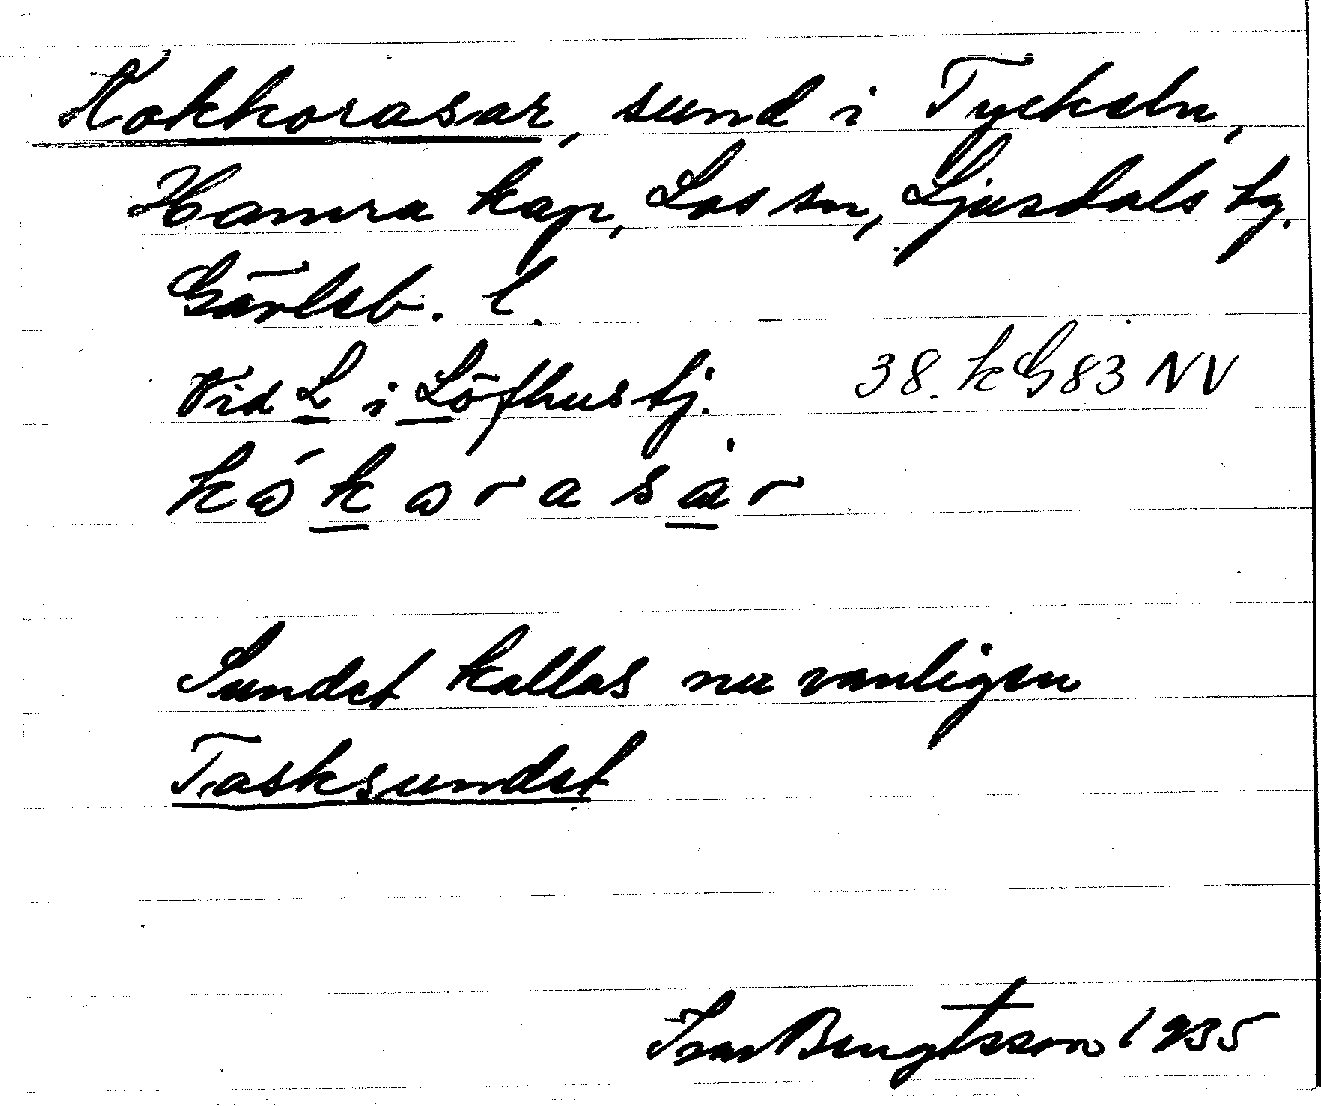 Kokkorasar, sund i Tyckeln,
Hamra kap, Los sn, Ljusdals tg.
Gävleb. l.
Vid L i Löfhustj. 38. k G 83 NV
kókorasȧr
Sundet kallas nu vanligen
Tasksundet
Ivar Bengtsson 1935